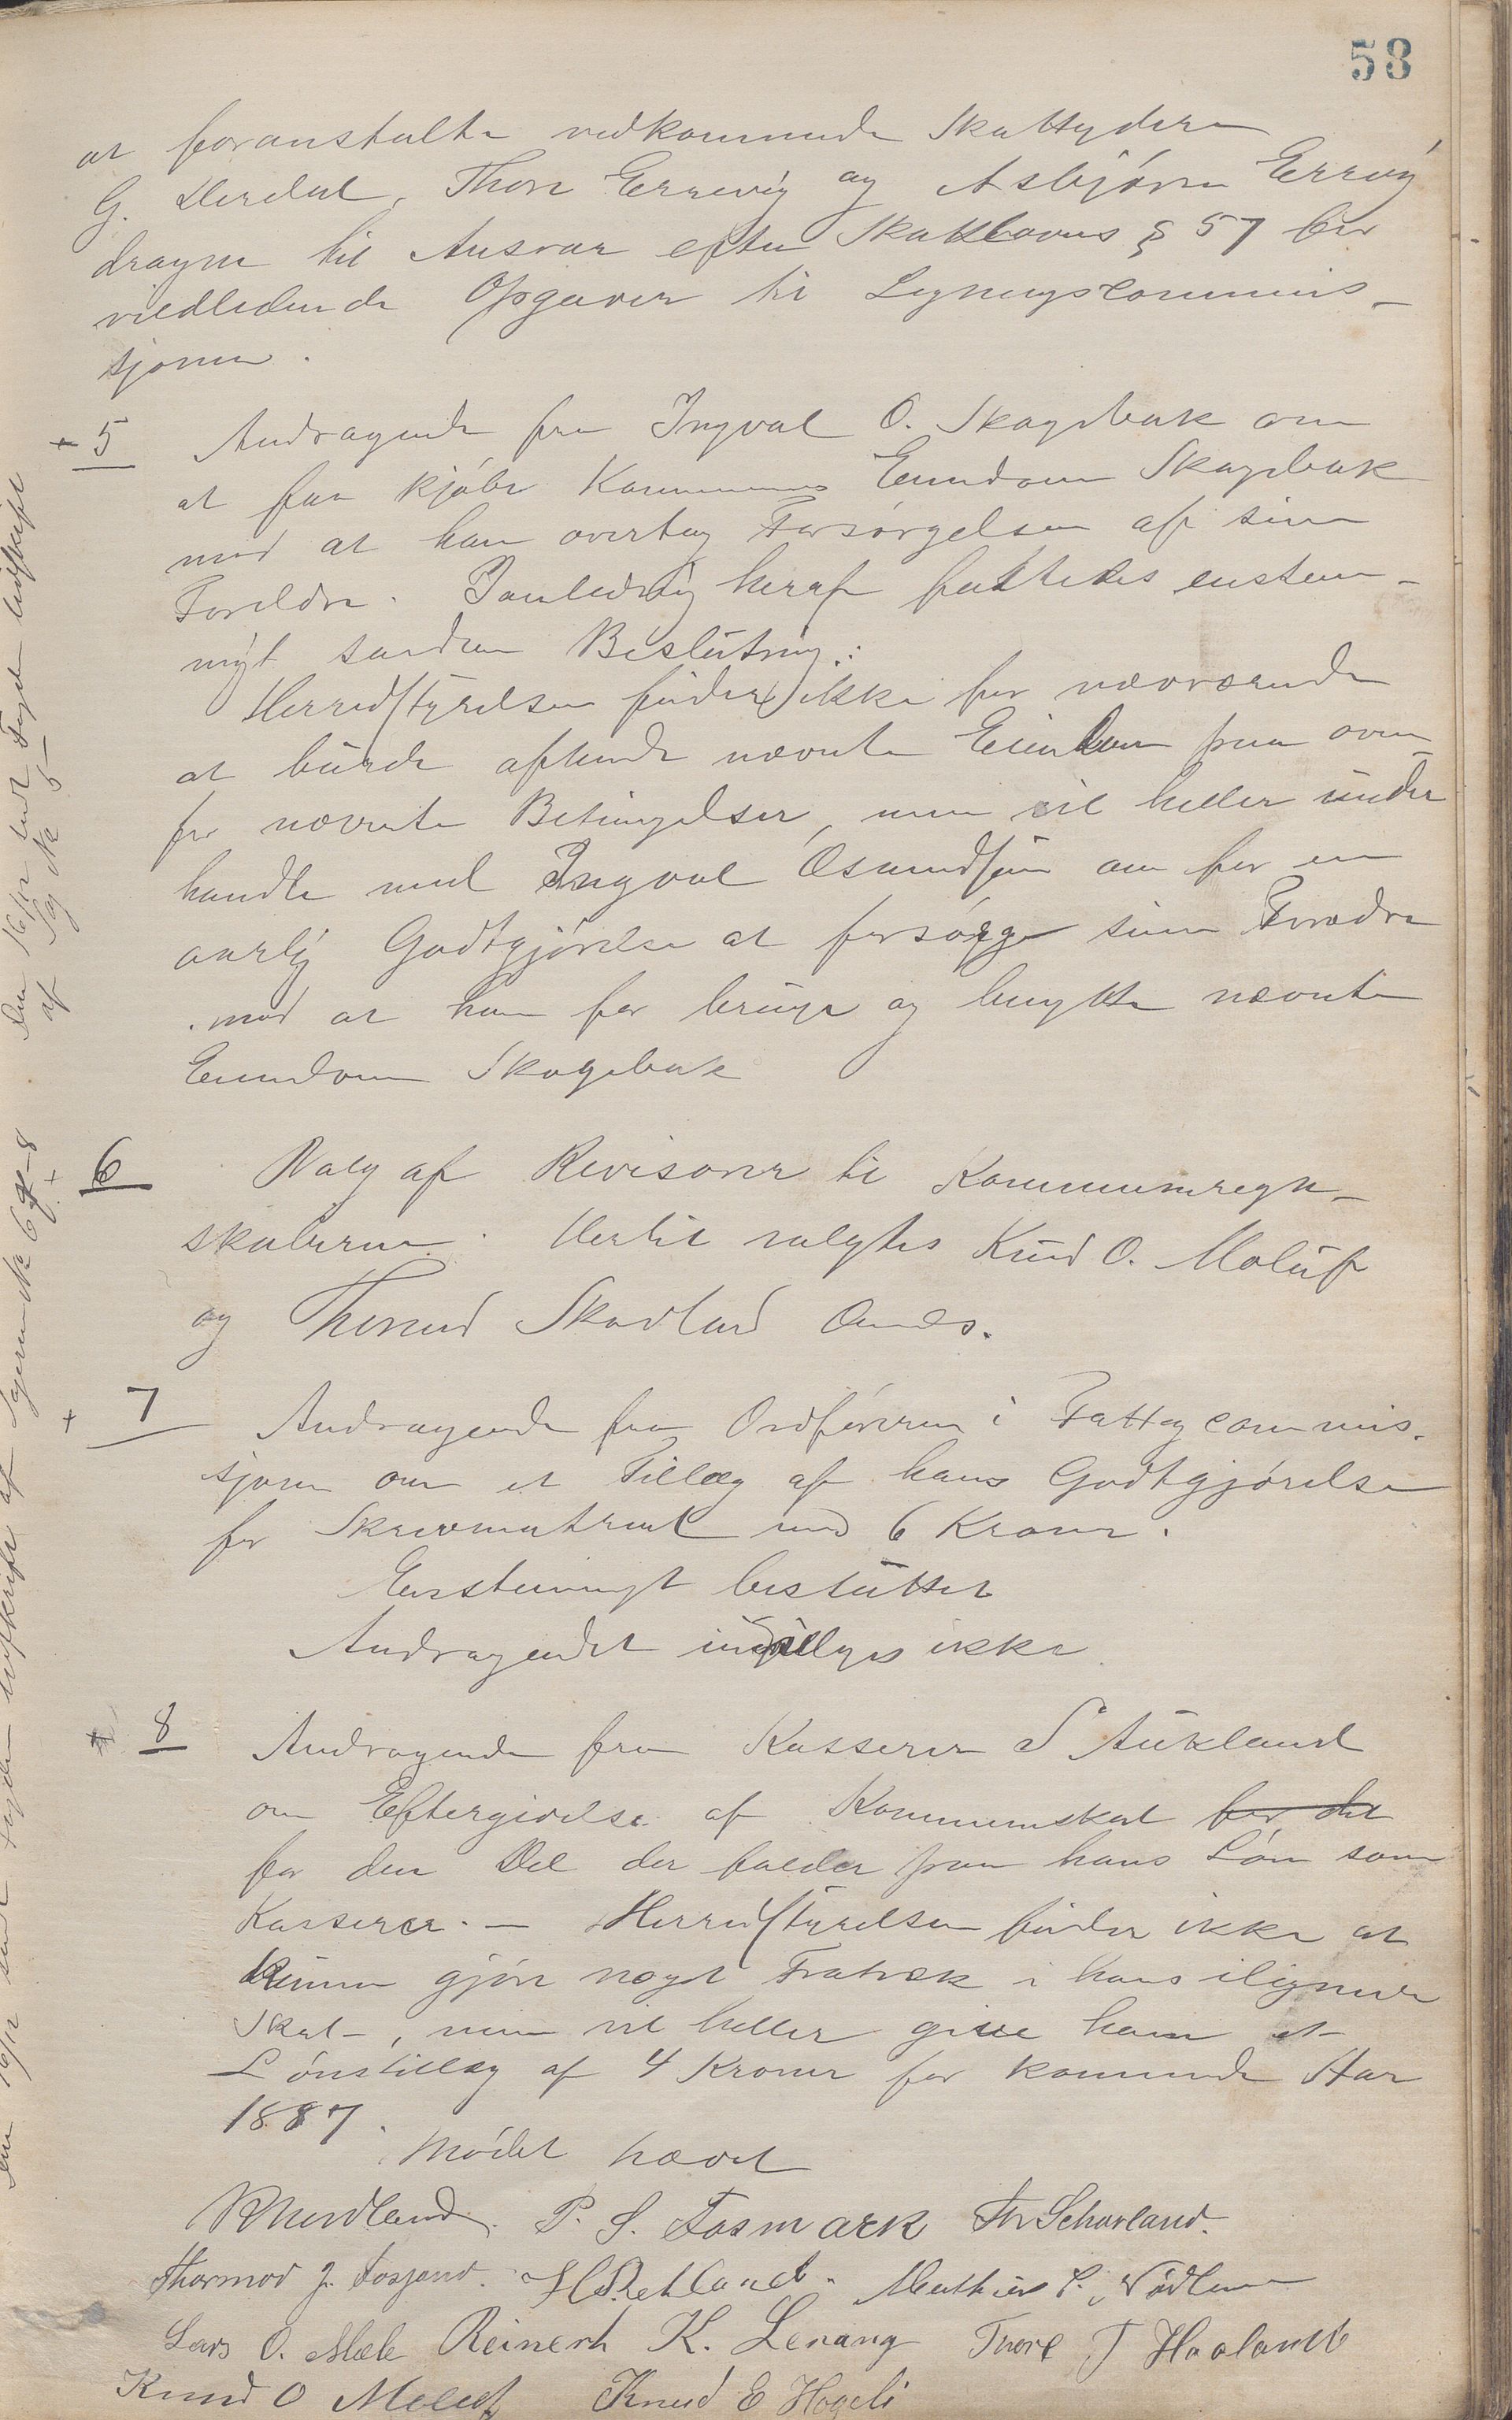 53
at foranstalte vedkommende Skatteydere
G. Herdal, Thore Errevig og Asbjørn Errevig
dragne til Ansvar efter Skatlovens § 57 for
vildledende Opgaver til Ligningscommis-
sjonen.
+ 5 Andragende fra Ingval O. Skagsbak om
at faa kjøbe Kommunens Eiendom Skagsbak
mod at han overtog Forsørgelsen af sine
Foreldre. I anledning heraf fattedes enstem-
migt saadan Beslutning:
Herredstyrelsen finder ikke for nærværende
at burde afhende nævnte Eiendom paa oven
for nævnte Betingelser, men vil heller under
handle med Ingval Osmundsen om for en
aarlig Godtgjørelse at forsørge sine Forældre
mod at han faar bruge og benytte nævnte
Eiendom Skagsbak
6 Valg af Revisorer til Kommuneregn-
skaberne. Hertil valgtes Knud O. Moluf
og Thormod Skavland Aanes.
+ 7 Andragende fra Ordføreren i Fattigcommis-
sjonen om et Tillæg af hans Godtgjørelse
for Skrivematrial med 6 Kroner.
Enstemmigt besluttet
Andragendet indvilges ikke
8 Andragende fra Kasserer S Aukland
om Eftergivelse af Kommuneskat for det
for den Del der falder paa hans Løn som
Kasserer. — Herredstyrelsen finder ikke at
kunne gjøre noget Fratræk i hans ilignede
Skat, men vil heller give ham et
Lønstillæg af 4 Kroner for kommende Aar
1887.
Mødet hævet
Nordland. P. S. Fosmark Thr Scharland.
Thormod J. Fosjand. H Retland. Mathias P. Nødland
Lars O. Mæle Reinert K. Lerang Tore T Haalandt
Knud O Moluf Knud E Hogeli
Den 16/12 sendt Fogden Udskrift
af Sag No 5
Den 16/12 sendt Fogden Udskrift af Sagerne No 6 7-8